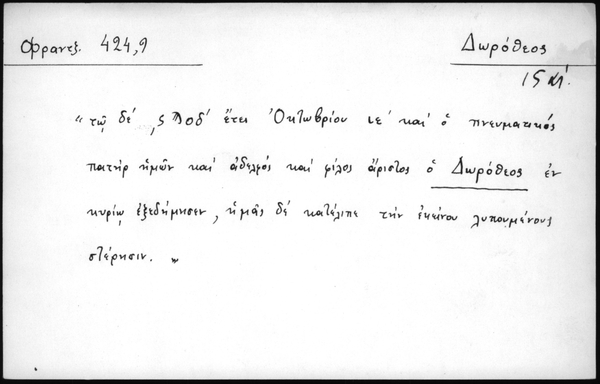 Φραντζ. 424,9
Δωρόθεος
15 αἰ.
“τῷ δέ ͵ϛϡοδ΄ ἔτει Ὀκτωβρίου ιε΄ καὶ ὁ πνευματικός
πατήρ ἡμῶν καί ἀδελφός καί φίλος ἄριστος ὁ Δωρόθεος ἐν
κυρίῳ ἐξεδήμησεν, ἡμᾶς δέ κατέλιπε τήν ἐκείνου λυπουμένους
στέρησιν. „